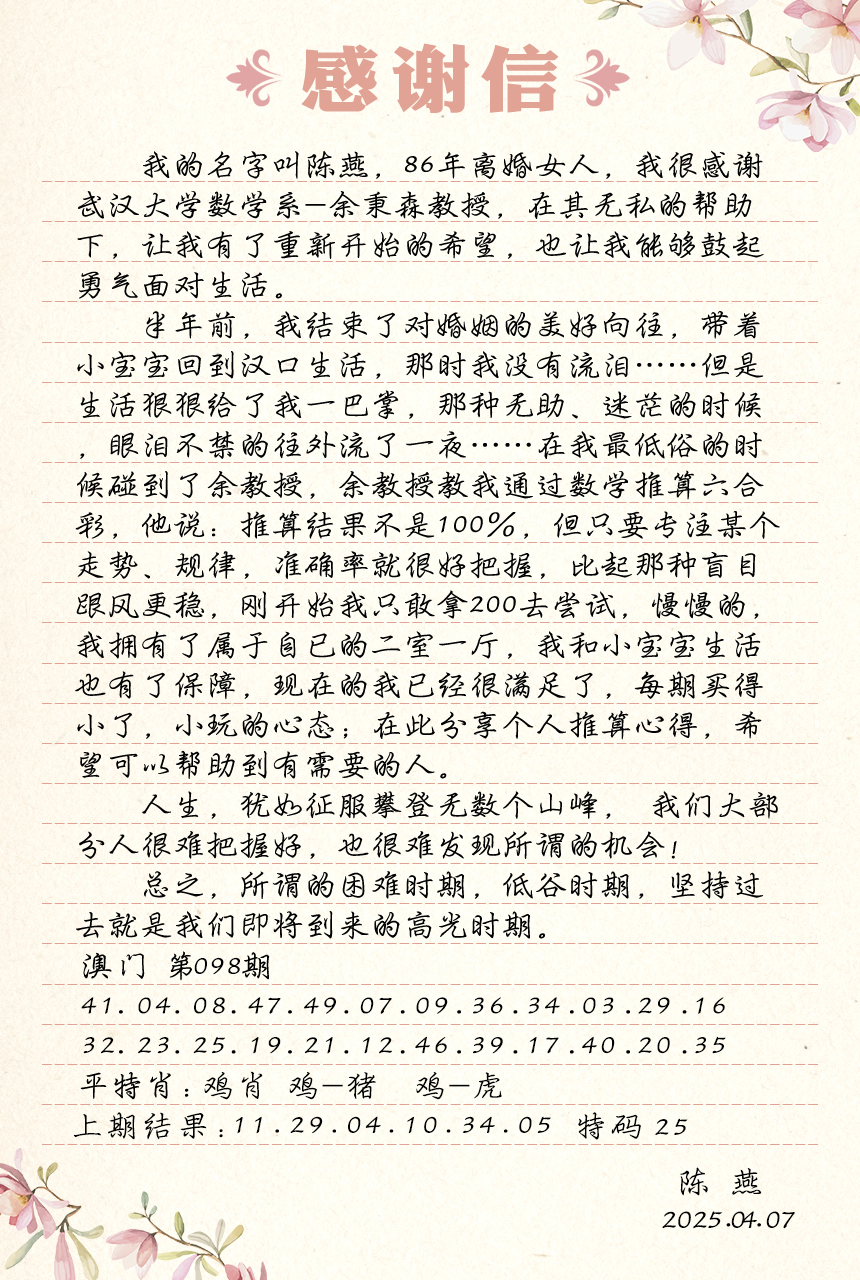 感谢信
我的名字叫陈燕，86年离婚女人，我很感谢
武汉大学数学系—余秉森教授，在其无私的帮助
下，让我有了重新开始的希望，也让我能够鼓起
勇气面对生活。
半年前，我结束了对婚姻的美好向往，带着
小宝宝回到汉口生活，那时我没有流泪……但是
生活狠狠给了我一巴掌，那种无助、迷茫的时候
，眼泪不禁的往外流了一夜……在我最低俗的时
候碰到了余教授，余教授教我通过数学推算六合
彩，他说：推算结果不是100%，但只要专注某个
走势、规律，准确率就很好把握，比起那种盲目
跟风更稳，刚开始我只敢拿200去尝试，慢慢的，
我拥有了属于自已的二室一厅，我和小宝宝生活
也有了保障，现在的我已经很满足了，每期买得
小了，小玩的心态；在此分享个人推算心得，希
望可以帮助到有需要的人。
人生，犹如征服攀登无数个山峰， 我们大部
分人很难把握好，也很难发现所谓的机会！
总之，所谓的困难时期，低谷时期，坚持过
去就是我们即将到来的高光时期。
澳门 第098期
41.04.08.47.49.07.09.36.34.03.29.16
32.23.25.19.21.12.46.39.17.40.20.35
平特肖：鸡肖 鸡—猪 鸡—虎
上期结果：11.29.04.10.34.05 特码 25
陈 燕
2025.04.07